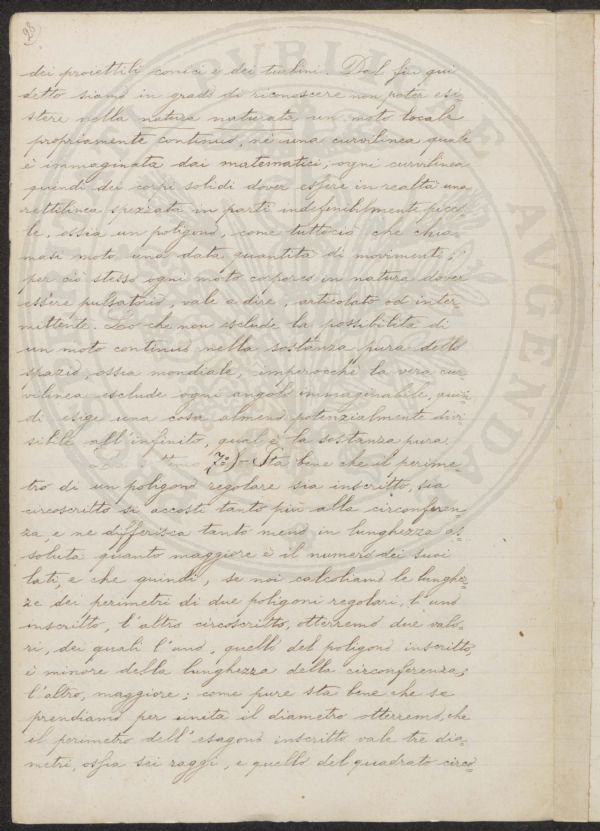 98
dei proiettili conici e dei turbini. Dal fin qui
detto siamo in grado di riconoscere non poter esi-
stere nella natura naturata un moto locale
propriamente continuo, nè una curvilinea quale
è immaginata dai matematici, ogni curvilinea
quindi dei corpi solidi dover essere in realtà una
rettilinea spezzata in parti indefinibilmente picco-
le, ossia un poligono, come tuttociò che chia-
masi moto una data quantità di movimenti;
per ciò stesso ogni moto corporeo in natura dover
essere pulsatorio, vale a dire, articolato od inter-
mittente. Lo che non esclude la possibilità di
un moto continuo nella sostanza pura dello
spazio, ossia mondiale, imperocchè la vera cur-
vilinea esclude ogni angolo immaginabile, quin-
di esige una cosa almeno potenzialmente divi-
sibile all'infinito, qual è la sostanza pura
7º) - Sta bene che il perime-
tro di un poligono regolare sia inscritto, sia
circoscritto si accosti tanto più alla circonferen-
za, e ne differisca tanto meno in lunghezza as-
soluta quanto maggiore è il numero dei suoi
lati, e che quindi, se noi calcoliamo le lunghez-
ze dei perimetri di due poligoni regolari, l'uno
inscritto, l'altro circoscritto, otterremo due valo-
ri, dei quali l'uno, quello del poligono inscritto,
è minore della lunghezza della circonferenza;
l'altro, maggiore; come pure sta bene che se
prendiamo per unità il diametro otterremo, che
il perimetro dell'esagono inscritto vale tre dia-
metri, ossia sei raggi, e quello del quadrato circo-